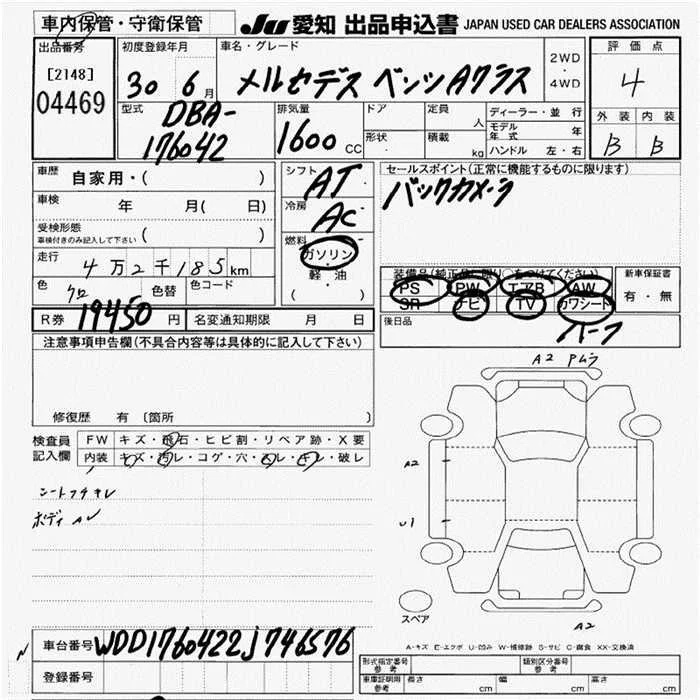 車内保管・守衛保管
JU 愛知 出品申込書 JAPAN USED CAR DEALERS ASSOCIATION
出品番号
[2148]
04469
初度登録年月
30 6月
車名・グレード
メルセデス ベンツ Aクラス
2WD
・
4WD
評価点
4
外装 内装
B B
型式
DBA-
176042
排気量
1600 CC
ドア
形状
定員 人
積載 kg
ディーラー・並行
モデル年式 年
ハンドル 左・右
車歴
自家用・( )
車検 年 月( 日)
受検形態
車検付きのみ記入して下さい ( )
走行
4万2千185km
色 クロ 色替 色コード
シフト
AT
冷房
AC
燃料
ガソリン
・
軽・油
( )
セールスポイント(正常に機能するものに限ります)
バックカメラ
装備品(純正品に限り○をつけてください)
PS PW エアB AW
SR ナビ TV カワシート
新車保証書
有・無
後日品
ハーフ
R券 19450円 名変通知期限 月 日
注意事項申告欄(不具合内容等は具体的に記入して下さい)
修復歴 有〔箇所 〕
検査員記入欄
FW キズ・飛石・ヒビ割・リペア跡・X要
内装 キズ・汚レ・コゲ・穴・スレ・キレ・破レ
ボディ AU
A2 Pムラ
A2
U1
A2
スペア
A-キズ E-エクボ U-凹み W-補修跡 S-サビ C-腐食 XX-交換済
車台番号 WDD1760422J746576
登録番号
形式指定番号 参考
類別区分番号 参考
車庫証明用 参考 長さ cm 幅 cm 高さ cm